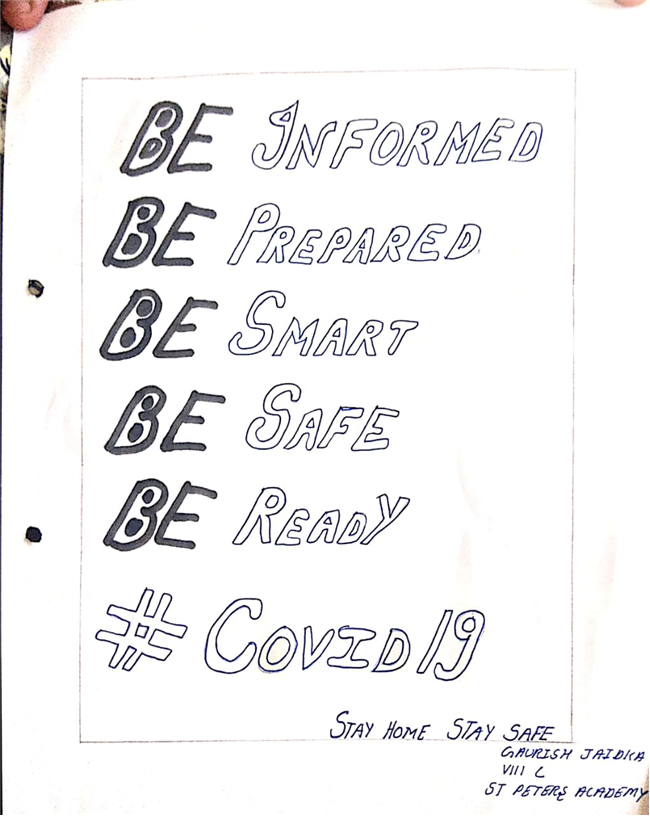 BE INFORMED
BE PREPARED
BE SMART
BE SAFE
BE READY
# COVID19
STAY HOME STAY SAFE
GAURISH JAIDKA
VIII L
ST PETERS ACADEMY